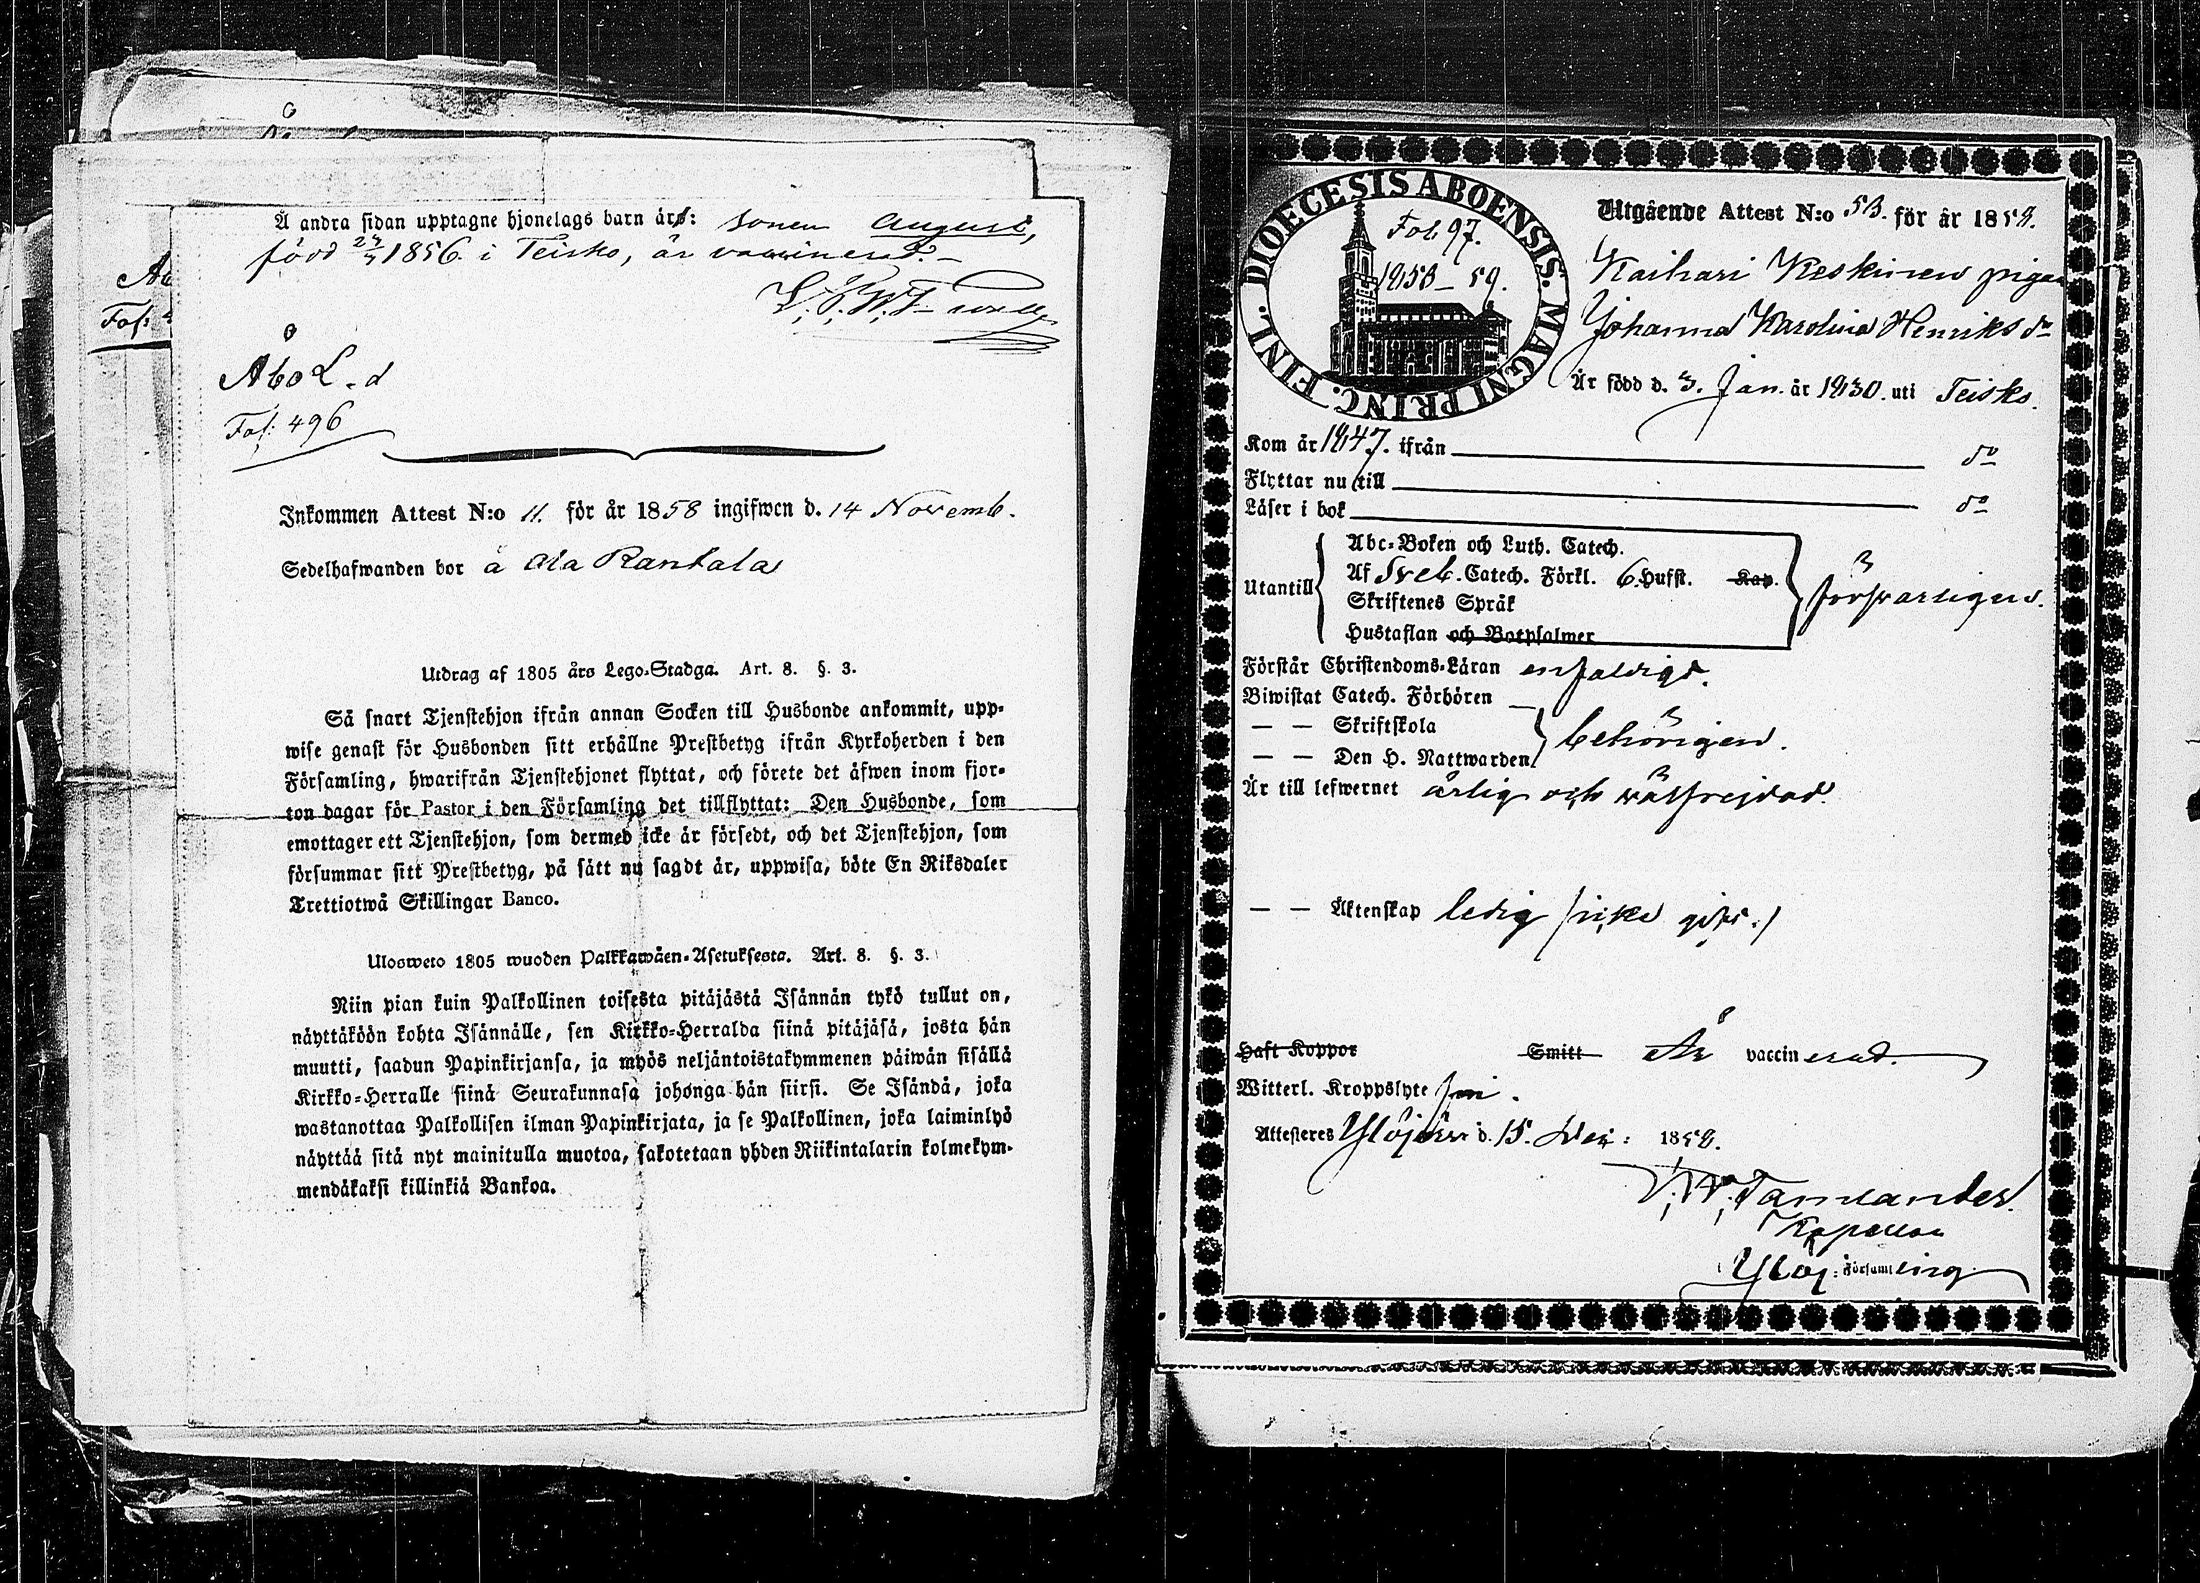 Å andra sidan upptagne hjonelags barn är: sonen August,
född 24/7 1856 i Teisko, är vaccinerad. –
Åbo L-d
Fol: 496
Inkommen Attest N:o 11. för år 1858 ingifwen d. 14 Novemb.
Sedelhafwanden bor å Ala Rantala
Utdrag af 1805 års Lego-Stadga. Art. 8. §. 3.
Så snart Tjenstehjon ifrån annan Socken till Husbonde ankommit, upp-
wise genast för Husbonden sitt erhållne Prestbetyg ifrån Kyrkoherden i den
Församling, hwarifrån Tjenstehjonet flyttat, och förete det äfwen inom fjor-
ton dagar för Pastor i den Församling det tillflyttat: Den Husbonde, som
emottager ett Tjenstehjon, som dermed icke är försedt, och det Tjenstehjon, som
försummar sitt Prestbetyg, på sätt nu sagdt är, uppwisa, böte En Riksdaler
Trettiotwå Skillingar Banco.
Ulosweto 1805 wuoden Palkkawäen-Asetuksesta. Art. 8. §. 3.
Niin pian kuin Palkollinen toisesta pitäjästä Isännän tykö tullut on,
näyttäköön kohta Isännälle, sen Kirkko-Herralda siinä pitäjäsä, josta hän
muutti, saadun Papinkirjansa, ja myös neljäntoistakymmenen päiwän sisällä
Kirkko-Herralle siinä Seurakunnasa johonga hän siirsi. Se Isändä, joka
wastanottaa Palkollisen ilman Papinkirjata, ja se Palkollinen, joka laiminlyö
näyttää sitä nyt mainitulla muotoa, sakotetaan yhden Riikintalarin kolmekym-
mendäkaksi killinkiä Bankoa.
DIOECESIS ABOENSIS. MAGNI PRINC. FINL.
Fol. 97.
1853–59.
Utgående Attest N:o 53. för år 1858.
Kaihari Keskinen pigan
Johanna Karolina Henriksdr
Är född d. 3. Jan. år 1830. uti Teisko.
Kom år 1847. ifrån do
Flyttar nu till do
Läser i bok
Utantill
Abc-Boken och Luth. Catech.
Af Sveb. Catech. Förkl. 6. Hufst. Kap.
Skriftenes Språk
Hustaflan och Botpsalmer
försvarligen.
Förstår Christendoms-Läran enfaldigt.
Biwistat Catech. Förhören
— — Skriftskola
— — Den H. Nattwarden
behörigen.
Är till lefwernet ärlig och wälfrejdad.
— — Äktenskap ledig /icke gift./
Haft Koppor Smitt Är vaccinerad.
Witterl. Kroppslyte fri.
Attesteras Ylöjärwi d. 15. Dec: 1858.
Kapellan
i Ylöj: Församling